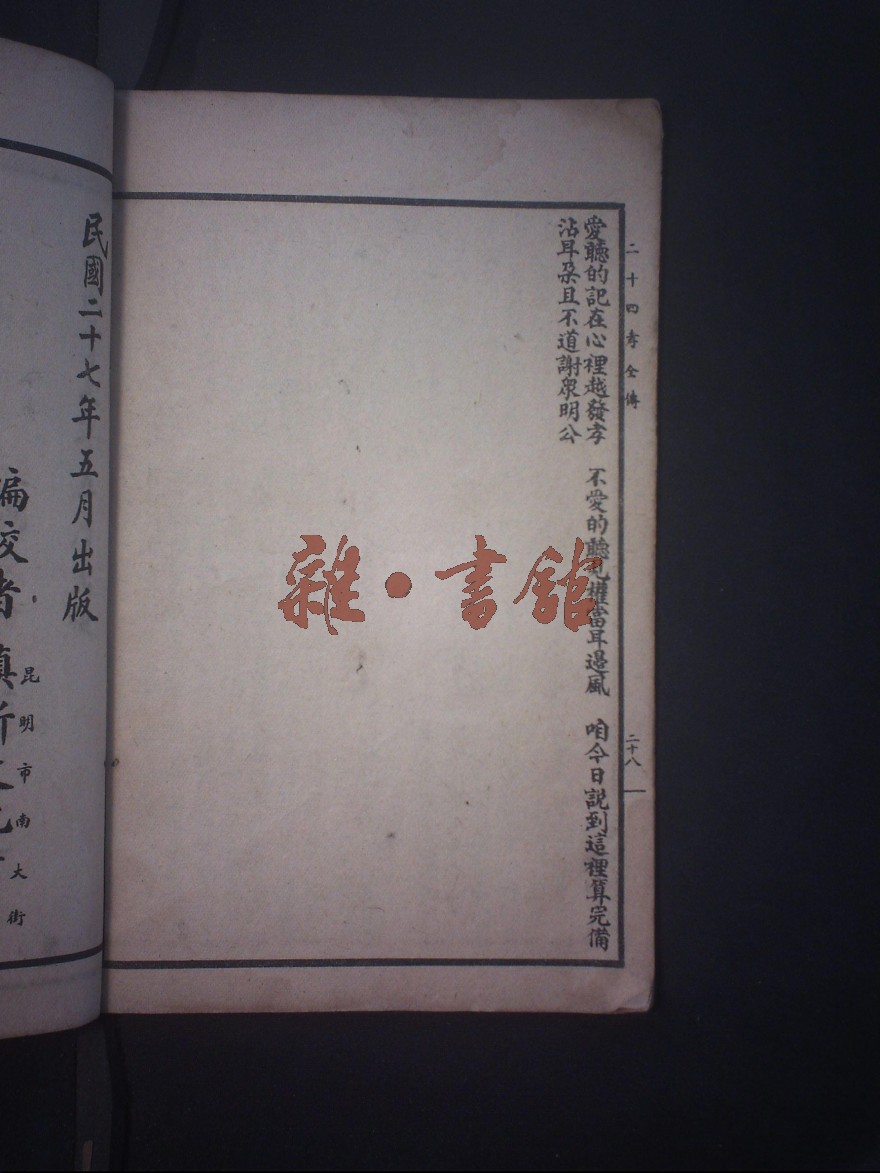 二十四孝全傳
二十八
愛聽的記在心裡越發孝　不愛的聽見權當耳邊風　咱今日說到這裡算完備
沾耳朶且不道謝衆明公
雜·書館
民國二十七年五月出版
昆明市南大街
編校者